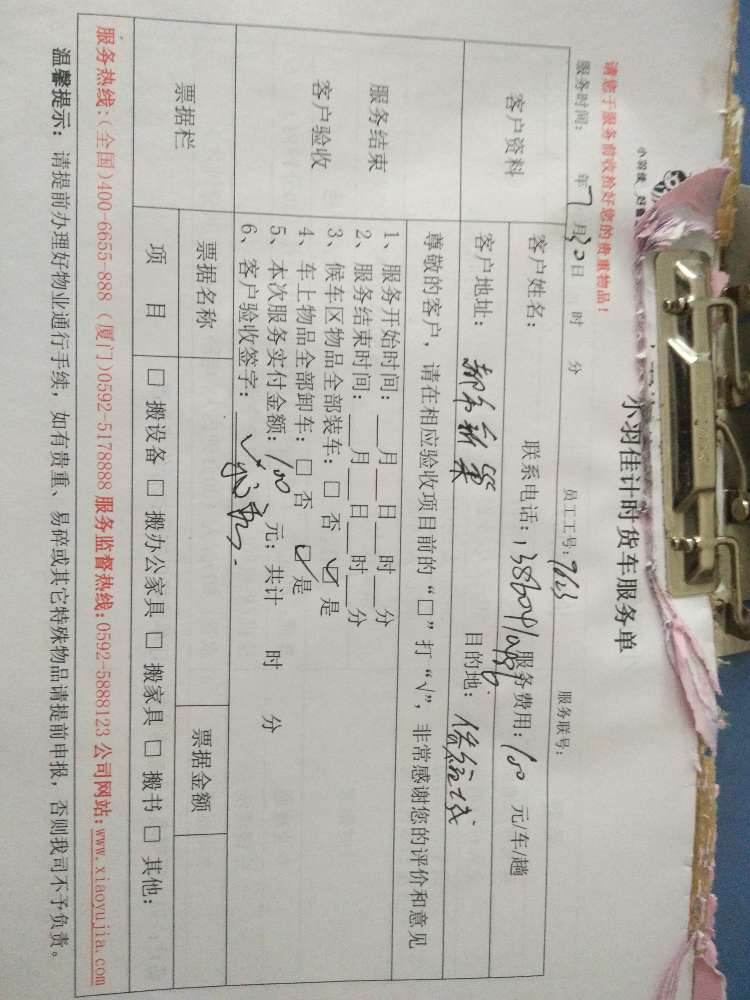 小羽佳 好
小羽佳计时货车服务单
请您于服务前收拾好您的贵重物品！
服务时间： 年7月30日 时 分 员工工号： 服务联号：
客户资料
客户姓名： 联系电话： 服务费用：100 元/车/趟
客户地址： 目的地：
尊敬的客户，请在相应验收项目前的“□”打“√”，非常感谢您的评价和意见
服务结束
客户验收
1、服务开始时间：__月__日__时__分
2、服务结束时间：__月__日__时__分
3、候车区物品全部装车：□ 否 ☑ 是
4、车上物品全部卸车：□ 否 ☑ 是
5、本次服务实付金额：100 元；共计 时 分
6、客户验收签字：
票据栏
票据名称 票据金额
项 目 □ 搬设备 □ 搬办公家具 □ 搬家具 □ 搬书 □ 其他：
服务热线：（全国）400-6655-888（厦门）0592-5178888 服务监督热线：0592-5888123 公司网站：www.xiaoyujia.com
温馨提示：请提前办理好物业通行手续，如有贵重、易碎或其它特殊物品请提前申报，否则我司不予负责。